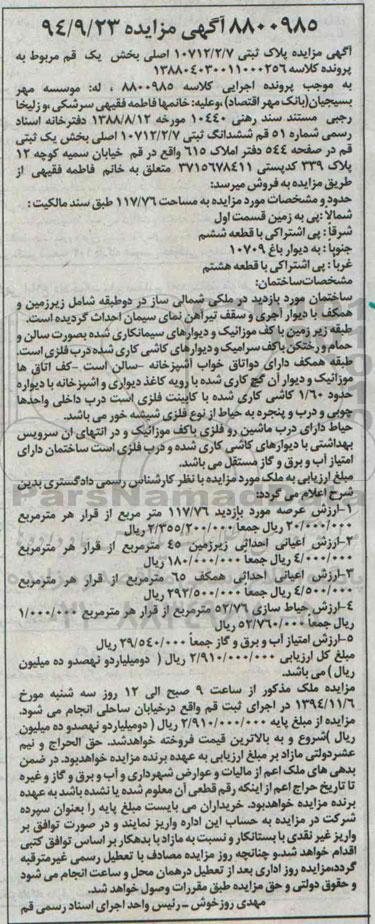 ۸۸۰۰۹۸۵ آگهی مزایده ۹۴/۹/۲۳
آگهی مزایده پلاک ثبتی ۱۰۷۱۲/۲/۷ اصلی بخش یک قم مربوط به
پرونده کلاسه ۱۳۸۸۰۴۰۳۰۰۱۱۰۰۰۲۵۶
به موجب پرونده اجرایی کلاسه ۸۸۰۰۹۸۵ ، له: موسسه مهر
بسیجیان(بانک مهر اقتصاد)،وعلیه: خانمها فاطمه فقیهی سرشکی ،و زلیخا
رجبی مستند سند رهنی ۱۰۴۴۰ مورخه ۱۳۸۸/۸/۱۲ دفترخانه اسناد
رسمی شماره ۵۱ قم ششدانگ ثبتی ۱۰۷۱۲/۲/۷ اصلی بخش یک ثبتی
قم در صفحه ۵۴۴ دفتر املاک ۶۱۵ واقع در قم خیابان سمیه کوچه ۱۲
پلاک ۳۳۹ کدپستی ۳۷۱۵۶۷۸۴۱۱ متعلق به خانم فاطمه فقیهی از
طریق مزایده به فروش میرسد:
حدود و مشخصات مورد مزایده به مساحت ۱۱۷/۷۶ طبق سند مالکیت :
شمالا :پی به زمین قسمت اول
شرقا : پی اشتراکی با قطعه ششم
جنوبا : به دیوار باغ ۱۰۷۰۹
غربا : پی اشتراکی با قطعه هشتم
مشخصات ساختمان:
ساختمان مورد بازدید در ملکی شمالی ساز در دوطبقه شامل زیرزمین و
همکف با دیوار آجری و سقف تیرآهن نمای سیمان احداث گردیده است.
طبقه زیر زمین با کف موزائیک و دیوارهای سیمانکاری شده بصورت سالن و
حمام و رختکن باکف سرامیک و دیوارهای کاشی کاری شده درب فلزی است.
طبقه همکف دارای دواتاق خواب آشپزخانه -سالن است -کف اتاق ها
موزائیک و دیوار آن گچ کاری شده با رویه کاغذ دیواری و اشپزخانه با دیواره
حدود ۱/۶۰ کاشی کاری شده با کابینت فلزی است درب داخلی واحدها
چوبی و درب و پنجره به حیاط از نوع فلزی شیشه خور می باشد.
حیاط دارای درب ماشین رو فلزی باکف موزائیک و در انتهای ان سرویس
بهداشتی با دیوارهای کاشی کاری شده و درب فلزی است ساختمان دارای
امتیاز آب و برق و گاز مستقل می باشد.
مبلغ ارزیابی به ملک مورد مزایده با نظر کارشناس رسمی دادگستری بدین
شرح اعلام می گردد:
۱-ارزش عرصه مورد بازدید ۱۱۷/۷۶ متر مربع از قرار هر مترمربع
۲۰/۰۰۰/۰۰۰ ریال جمعا ۲/۳۵۵/۲۰۰/۰۰۰ ریال
۲-ارزش اعیانی احداثی زیرزمین ۴۵ مترمربع از قرار هر مترمربع
۴/۰۰۰/۰۰۰ ریال جمعا ۱۸۰/۰۰۰/۰۰۰ ریال
۳-ارزش اعیانی احداثی همکف ۶۵ مترمربع از قرار هر مترمربع
۴/۵۰۰/۰۰۰ ریال جمعا ۲۹۲/۵۰۰/۰۰۰ ریال
۴-ارزش حیاط سازی ۵۲/۷۶ مترمربع از قرار هر مترمربع ۱/۰۰۰/۰۰۰
ریال جمعا ۵۲/۷۶۰/۰۰۰ ریال
۵-ارزش امتیاز آب و برق و گاز جمعا ۲۹/۵۴۰/۰۰۰ ریال
مبلغ کل ارزیابی ۲/۹۱۰/۰۰۰/۰۰۰ ریال ( دومیلیاردو نهصدو ده میلیون
ریال ) می باشد.
مزایده ملک مذکور از ساعت ۹ صبح الی ۱۲ روز سه شنبه مورخ
۱۳۹۴/۱۱/۶ در اجرای ثبت قم واقع درخیابان ساحلی انجام می شود.
مزایده از مبلغ پایه ۲/۹۱۰/۰۰۰/۰۰۰ ریال ( دومیلیاردو نهصدو ده میلیون
ریال )شروع و به بالاترین قیمت فروخته خواهدشد. حق الحراج و نیم
عشردولتی مازاد بر مبلغ ارزیابی به عهده برنده مزایده خواهدبود. در ضمن
بدهی های ملک اعم از مالیات و عوارض شهرداری و آب و برق و گاز و غیره
تا تاریخ حراج اعم از اینکه رقم قطعی آن معلوم شده یا نشده باشد به عهده
برنده مزایده خواهدبود. خریداران می بایست مبلغ پایه را بعنوان سپرده
شرکت در مزایده به حساب این اداره واریز نمایند و در صورت توافق بر
واریز غیر نقدی با بستانکار و نسبت به مازاد با بدهکار بر اساس توافق کتبی
اقدام خواهد شد.و چنانچه روز مزایده مصادف با تعطیل رسمی غیرمترقبه
گردد،مزایده روز اداری بعد از تعطیل درهمان محل و ساعت انجام می شود
و حقوق دولتی و حق مزایده طبق مقررات وصول خواهد شد.
مهدی روزخوش – رئیس واحد اجرای اسناد رسمی قم